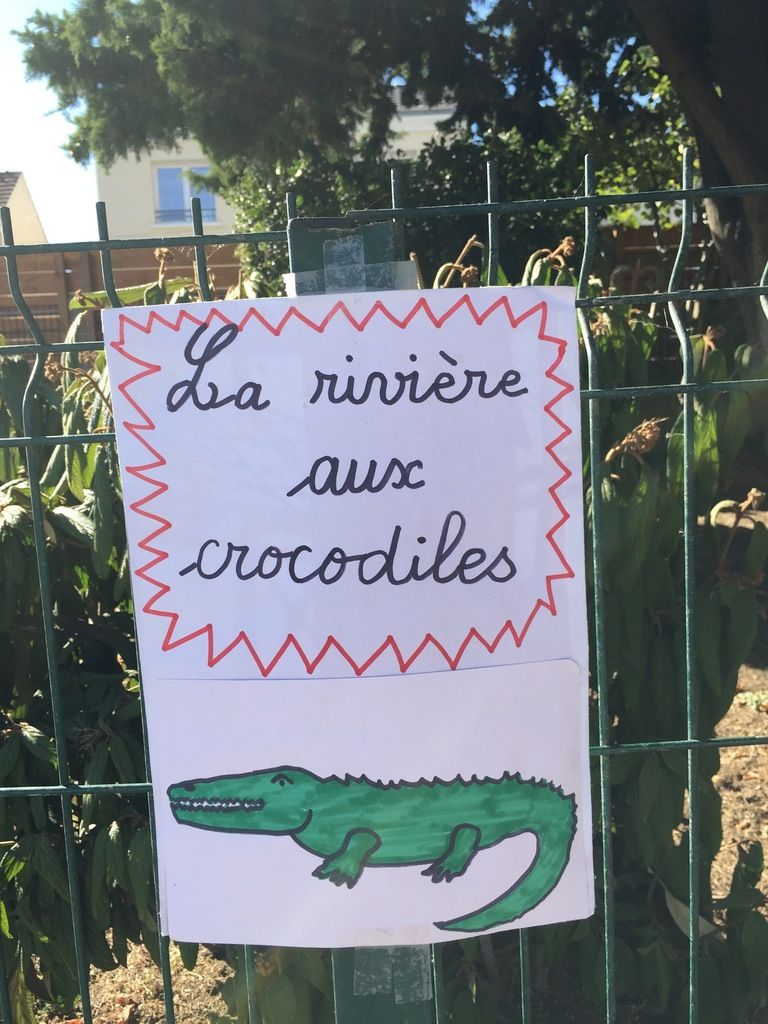 La rivière
aux
crocodiles